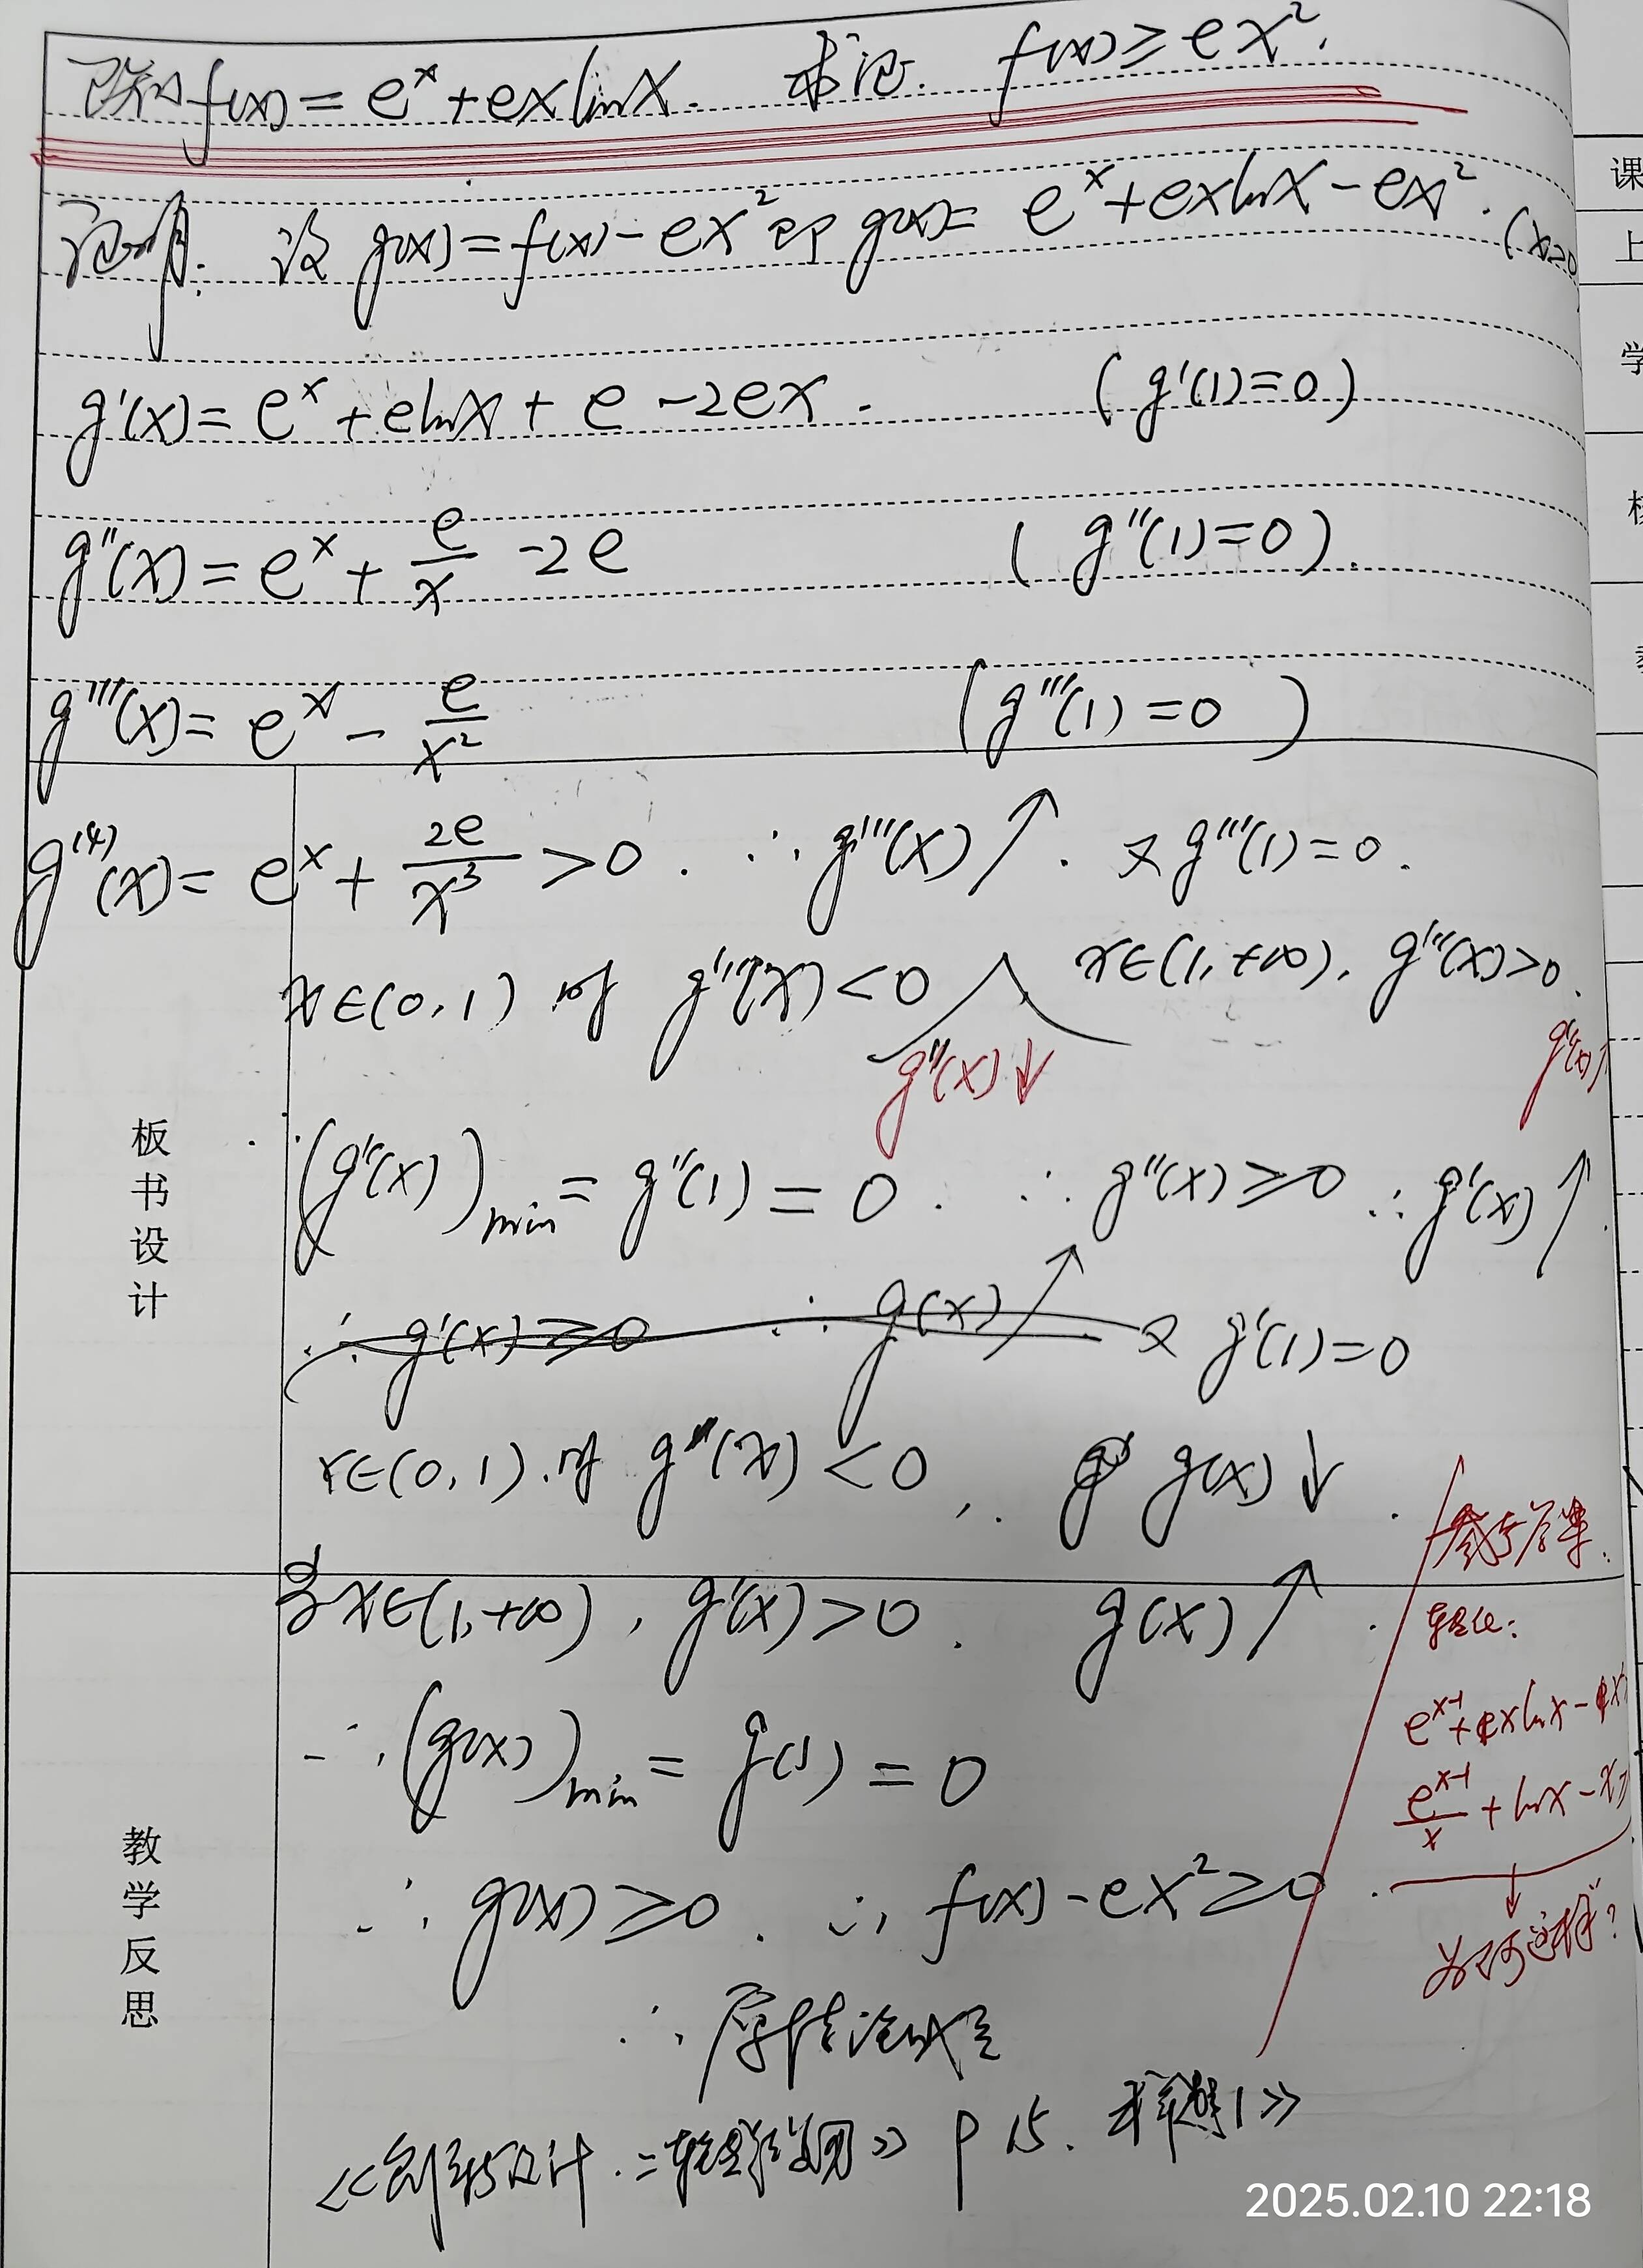 已知f(x)=eˣ+exlnx. 求证. f(x)≥ex².
证明. 设 g(x)=f(x)-ex² 即 g(x)= eˣ+exlnx-ex². (x>0
g'(x)= eˣ+elnx+e-2ex. (g'(1)=0)
g''(x)=eˣ+e/x-2e (g''(1)=0).
g'''(x)= eˣ-e/x² (g'''(1)=0)
g⁽⁴⁾(x)= eˣ+2e/x³>0. ∴g'''(x)↑. 又g'''(1)=0.
x∈(0,1) 时 g'''(x)<0 x∈(1,+∞), g'''(x)>0.
g''(x)↓ g''(x)↑
(g''(x))min=g''(1)=0. ∴g''(x)≥0 ∴g'(x)↑.
∴g'(x)≥0 ∴g(x)↑ 又g'(1)=0
x∈(0,1).时 g'(x)<0, g(x)↓.
x∈(1,+∞), g'(x)>0. g(x)↑.
∴(g(x))min=g(1)=0
∴g(x)≥0. ∴f(x)-ex²≥0.
∴原结论成立
《创新设计.二轮 》P15. 1》
参考答案:
转化:
eˣ⁻¹+xlnx-x²
eˣ⁻¹/x+lnx-x≥
为何这样?
课
上
学
板书设计
教学反思
2025.02.10 22:18